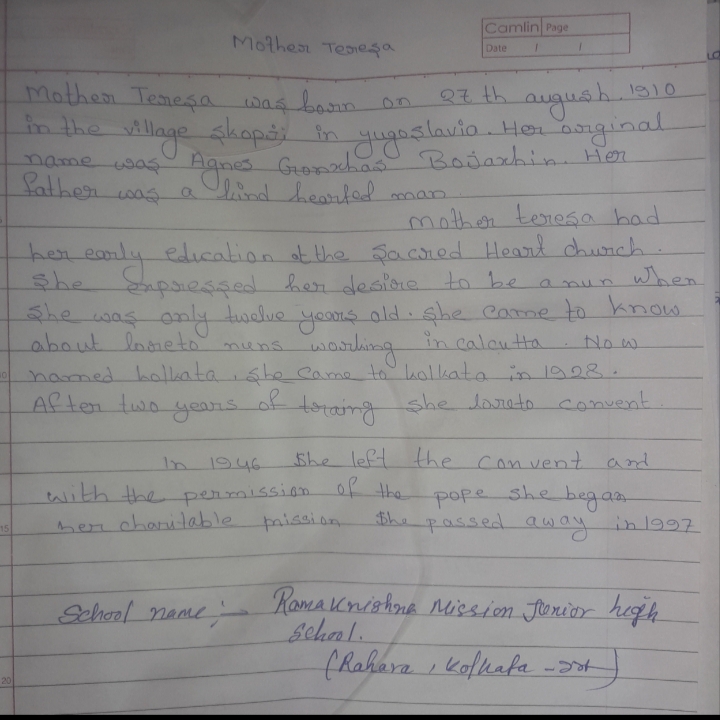 Mother Teresa
Camlin Page
Date / /
Mother Teresa was born on 27 th augush. 1910
in the village skopii in yugoslavia. Her original
name was Agnes Gronxhas Bojaxhin. Her
father was a kind hearted man
Mother teresa had
her early education at the Sacred Heart church.
She Expressed her desire to be a nun when
She was only twelve years old. She came to know
about loreto nuns working in calcutta. Now
named kolkata, She Came to kolkata in 1928.
After two years of traing she loreto convent.
In 1946 She left the convent and
with the permission of the pope she began
her charitable mission She passed away in 1997
10
15
20
School name :- Ramakrishna Mission Junior high
School.
(Rahara, Kolkata -